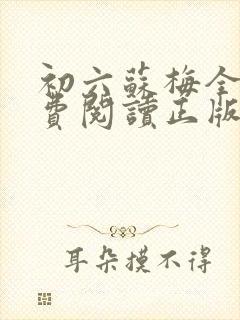 初六蘇梅全
費閱讀正版
耳朵摸不得